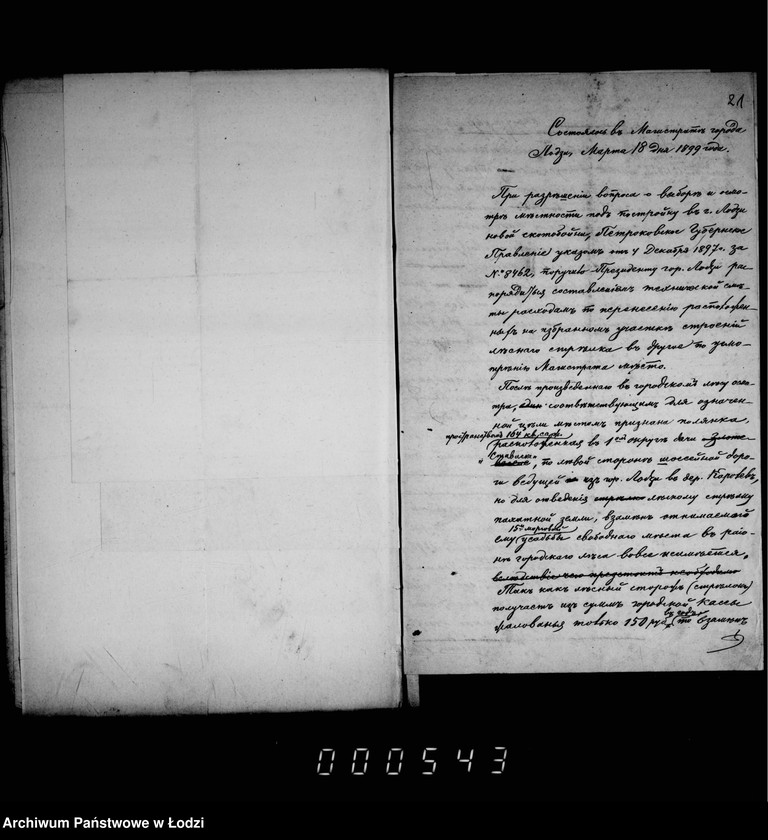 21
Состоялось въ Магистратѣ города
Лодзи, Марта 18 дня 1899 года.
При разрѣшеніи вопроса о выборѣ и осмо-
трѣ мѣстности подъ постройку въ г. Лодзи
новой скотобойни, Петроковское Губернское
Правленіе указомъ отъ 4 Декабря 1897 г. за
№ 8462, поручило Президенту гор. Лодзи рас-
порядиться составленіемъ технической смѣ-
ты расходамъ по перенесенію расположен-
ныхъ на избранномъ участкѣ строеній
лѣснаго стрѣлка въ другое по усмо-
трѣнію Магистрата мѣсто.
Послѣ произведеннаго въ городскомъ лѣсу осмо-
тра, соотвѣтствующимъ для означен-
ной цѣли мѣстомъ признана полянка,
пространствомъ 164 кв. саж.
расположенная въ 1ой округѣ дачи
, по лѣвой сторонѣ шоссейной доро-
ги ведущей изъ гор. Лодзи въ дер. Коровѣ,
но для отведенія лѣсному стрѣлку
пахатной земли, взамѣнъ отнимаемой
15ти морговой
ему усадьбы свободнаго мѣста въ рай-
нѣ городскаго лѣса вовсе не имѣется,
вслѣдствіе чего предстоитъ необходимо
Такъ какъ лѣсный сторожъ (стрѣлокъ)
получаетъ изъ суммъ городской Кассы
въ годъ
жалованья только 150 руб. то взамѣнъ
000543
Archiwum Państwowe w Łodzi